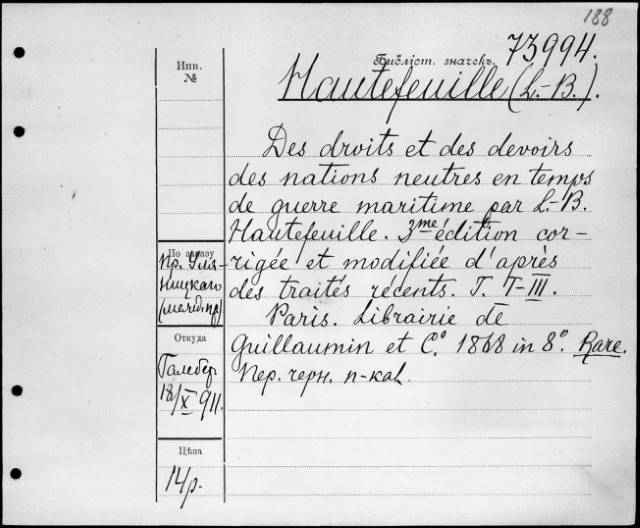 188
73994.
Инв.
№
Библіот. значекъ.
Hautefeuille (L.-B.).
Des droits et des devoirs
des nations neutres en temps
de guerre maritime par L.-B.
Hautefeuille. 3me édition cor-
rigée et modifiée d'après
des traités récents. T. I-III.
Paris. Librairie de
Guillaumin et Co. 1868 in 8o. Rare.
Пер. черн. п-кал.
По заказу
Пр. Уля-
ницкаго
Откуда
18/X 911.
Цѣна
14 р.